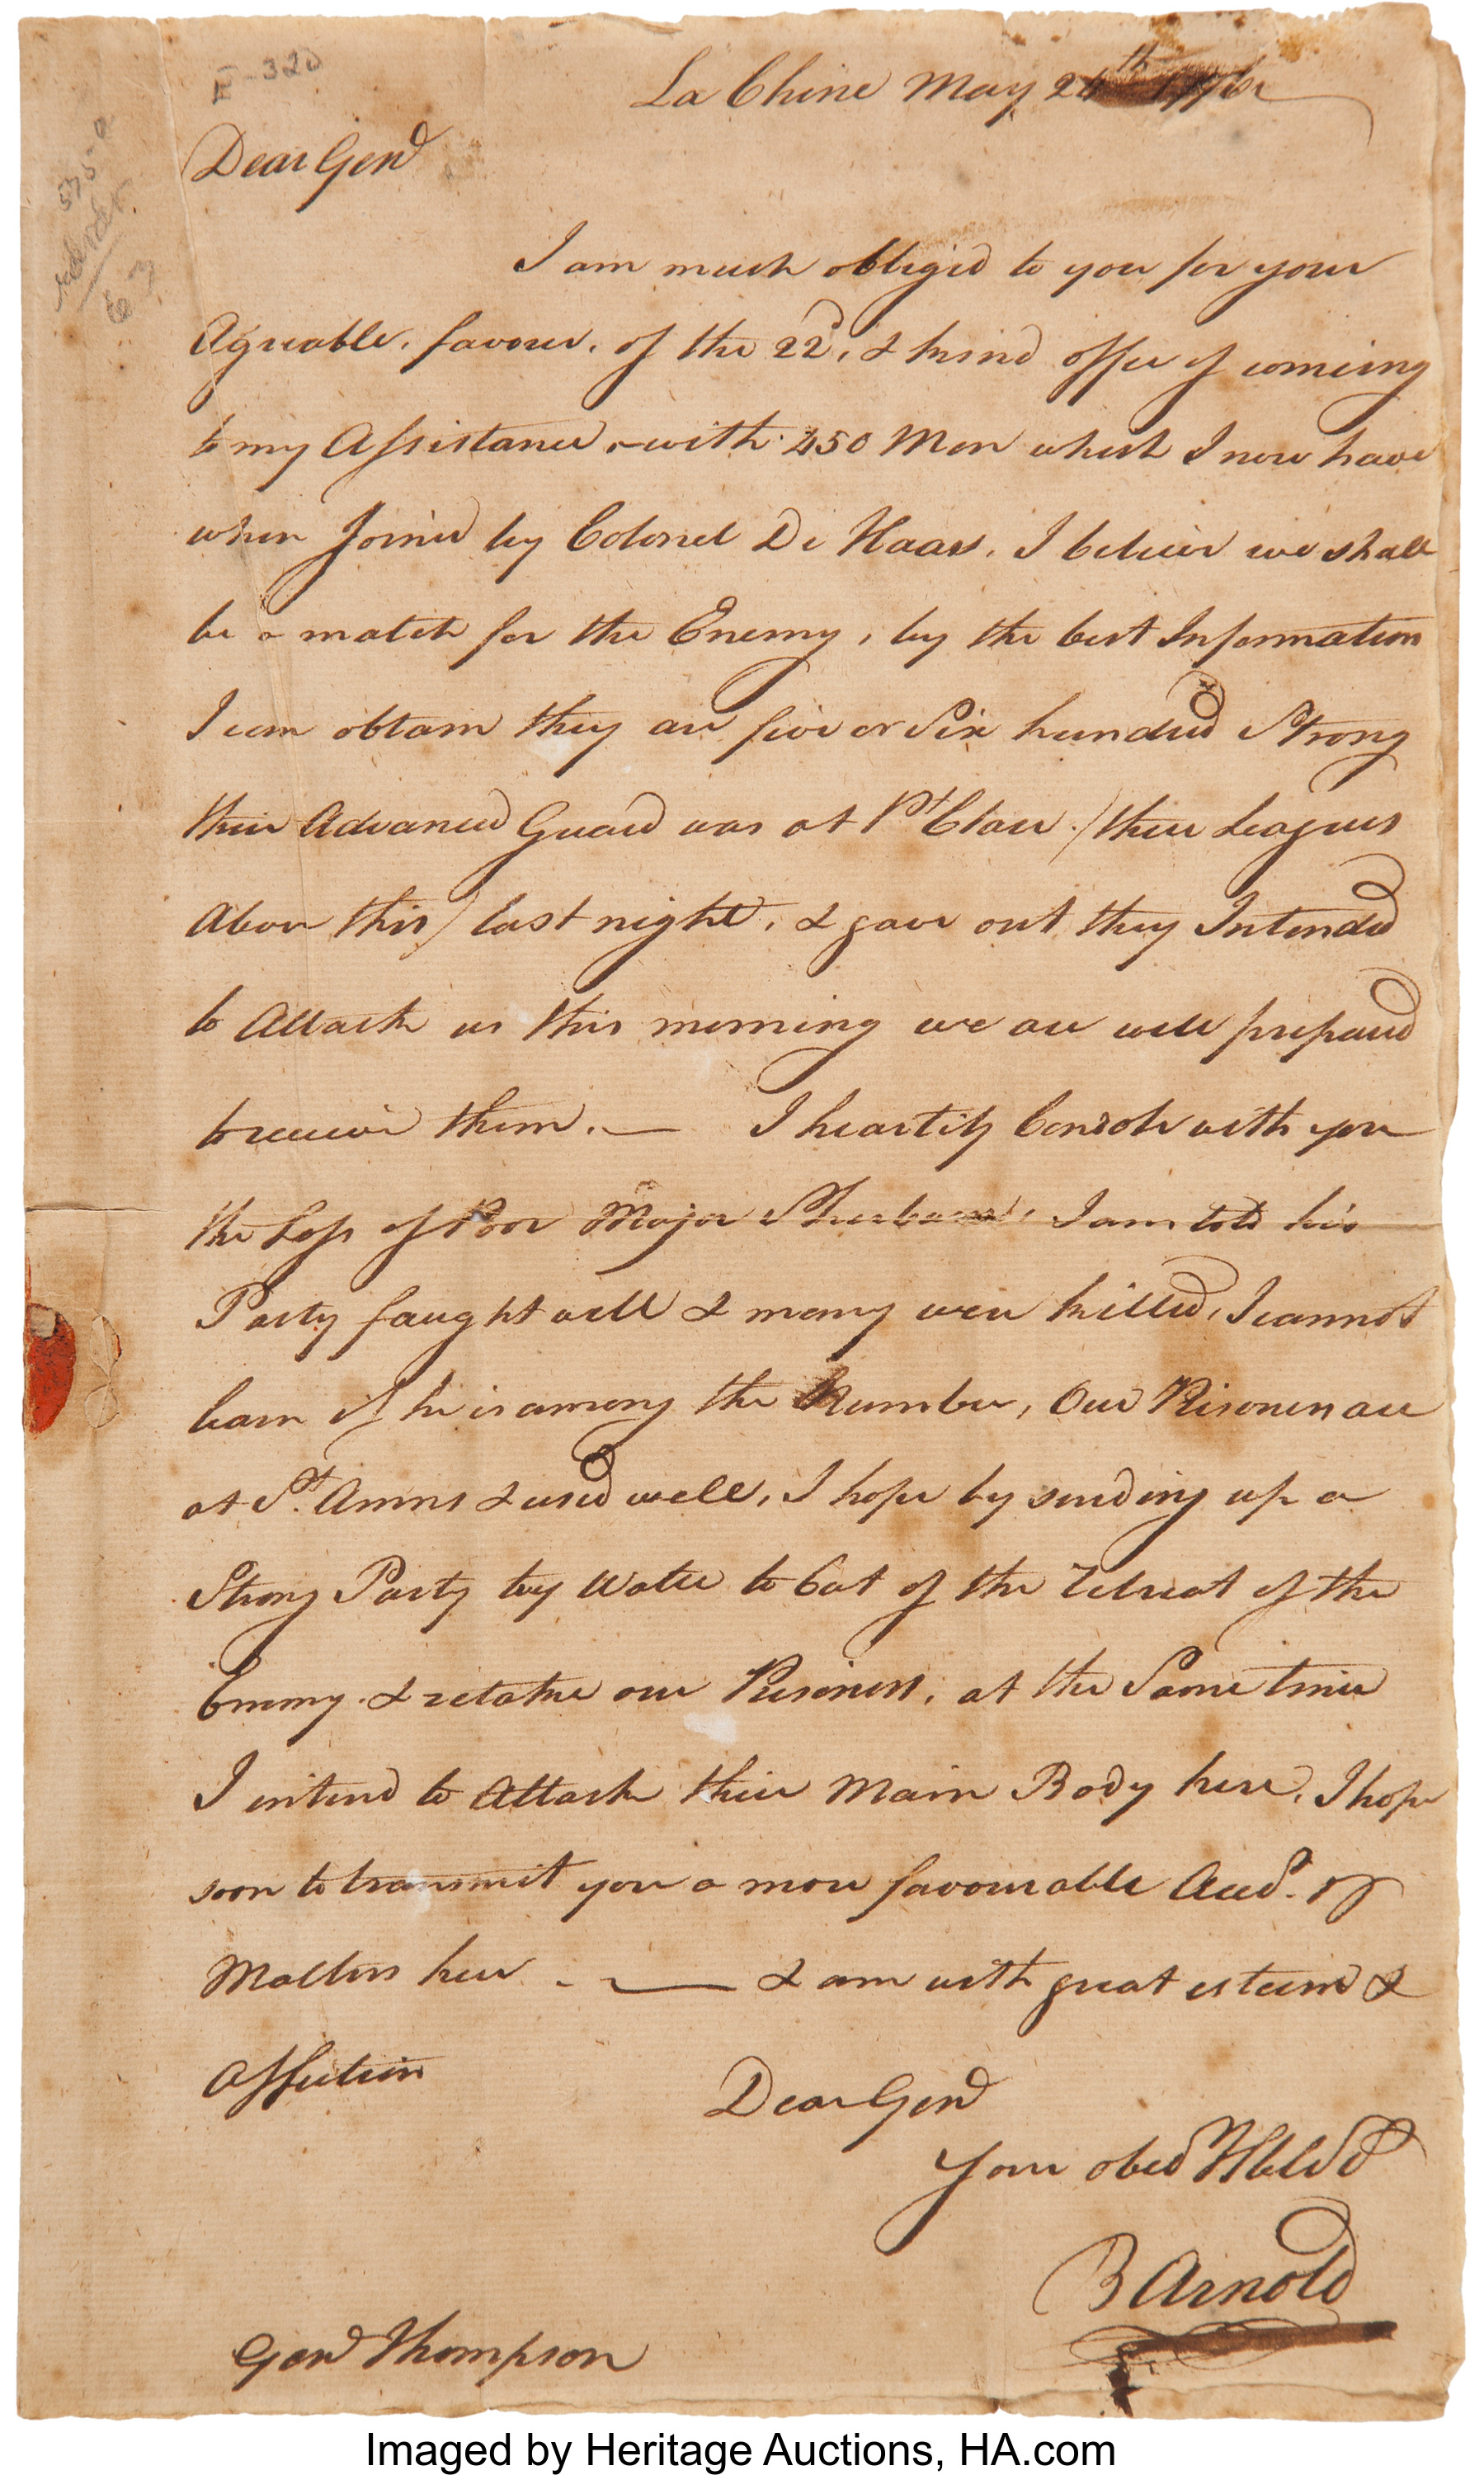 E-320
La Chine May 24th 1776
Dear Genl
I am much obligid to you for your
Agreable, favour, of the 22d, & kind offer of comeing
to my Assistance, with 450 Men which I now have
when Joined by Colonel De Haas, I believe we shall
be a match for the Enemy, by the best Information
I can obtain they are five or Six hundred Strong
their Advanced Guard was at Pt Clare (three Leagues
Above this) last night, & gave out they Intended
to Attack us this morning we are well prepared
to receive them. — I heartily Condole with you
the Loss of Poor Major Sherburne, I am told his
Party faught well & many were killed, I cannot
learn if he is among the Number, Our Prisoners are
at St. Anns & used well, I hope by sending up a
Strong Party by Water to Cut of the Retreat of the
Enemy & retake our Prisoners, at the Same time
I intend to Attack their Main Body here, I hope
soon to transmit you a more favourable Acct. of
Matters here - — I am with great esteem &
Affection
Dear Genl
Your obed Hble St
B Arnold
Genl Thompson
Imaged by Heritage Auctions, HA.com